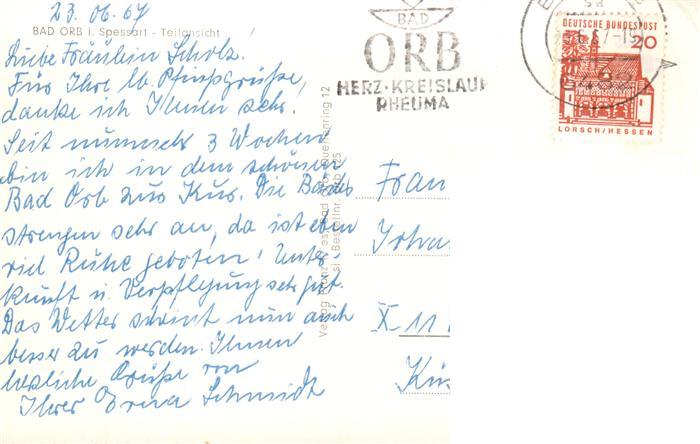 23.06.67
BAD ORB i. Spessart - Teilansicht
Liebe Fräulein Scholz.
Für Ihre lb. Pfingstgrüße,
danke ich Ihnen sehr.
Seit nunmehr 3 Wochen
bin ich in dem schönen
Bad Orb zur Kur. Die Bäder
strengen sehr an, da ist eben
viel Ruhe geboten! Unter-
kunft u. Verpflegung sehr gut.
Das Wetter scheint nun auch
besser zu werden. Ihnen
herzliche Grüße von
Ihrer Erna Schmidt
Verlag Franz
Quellenring 12
Bestellnr.
BAD
ORB
HERZ·KREISLAUF
RHEUMA
DEUTSCHE BUNDESPOST
20
LORSCH/HESSEN
Frau
X 11